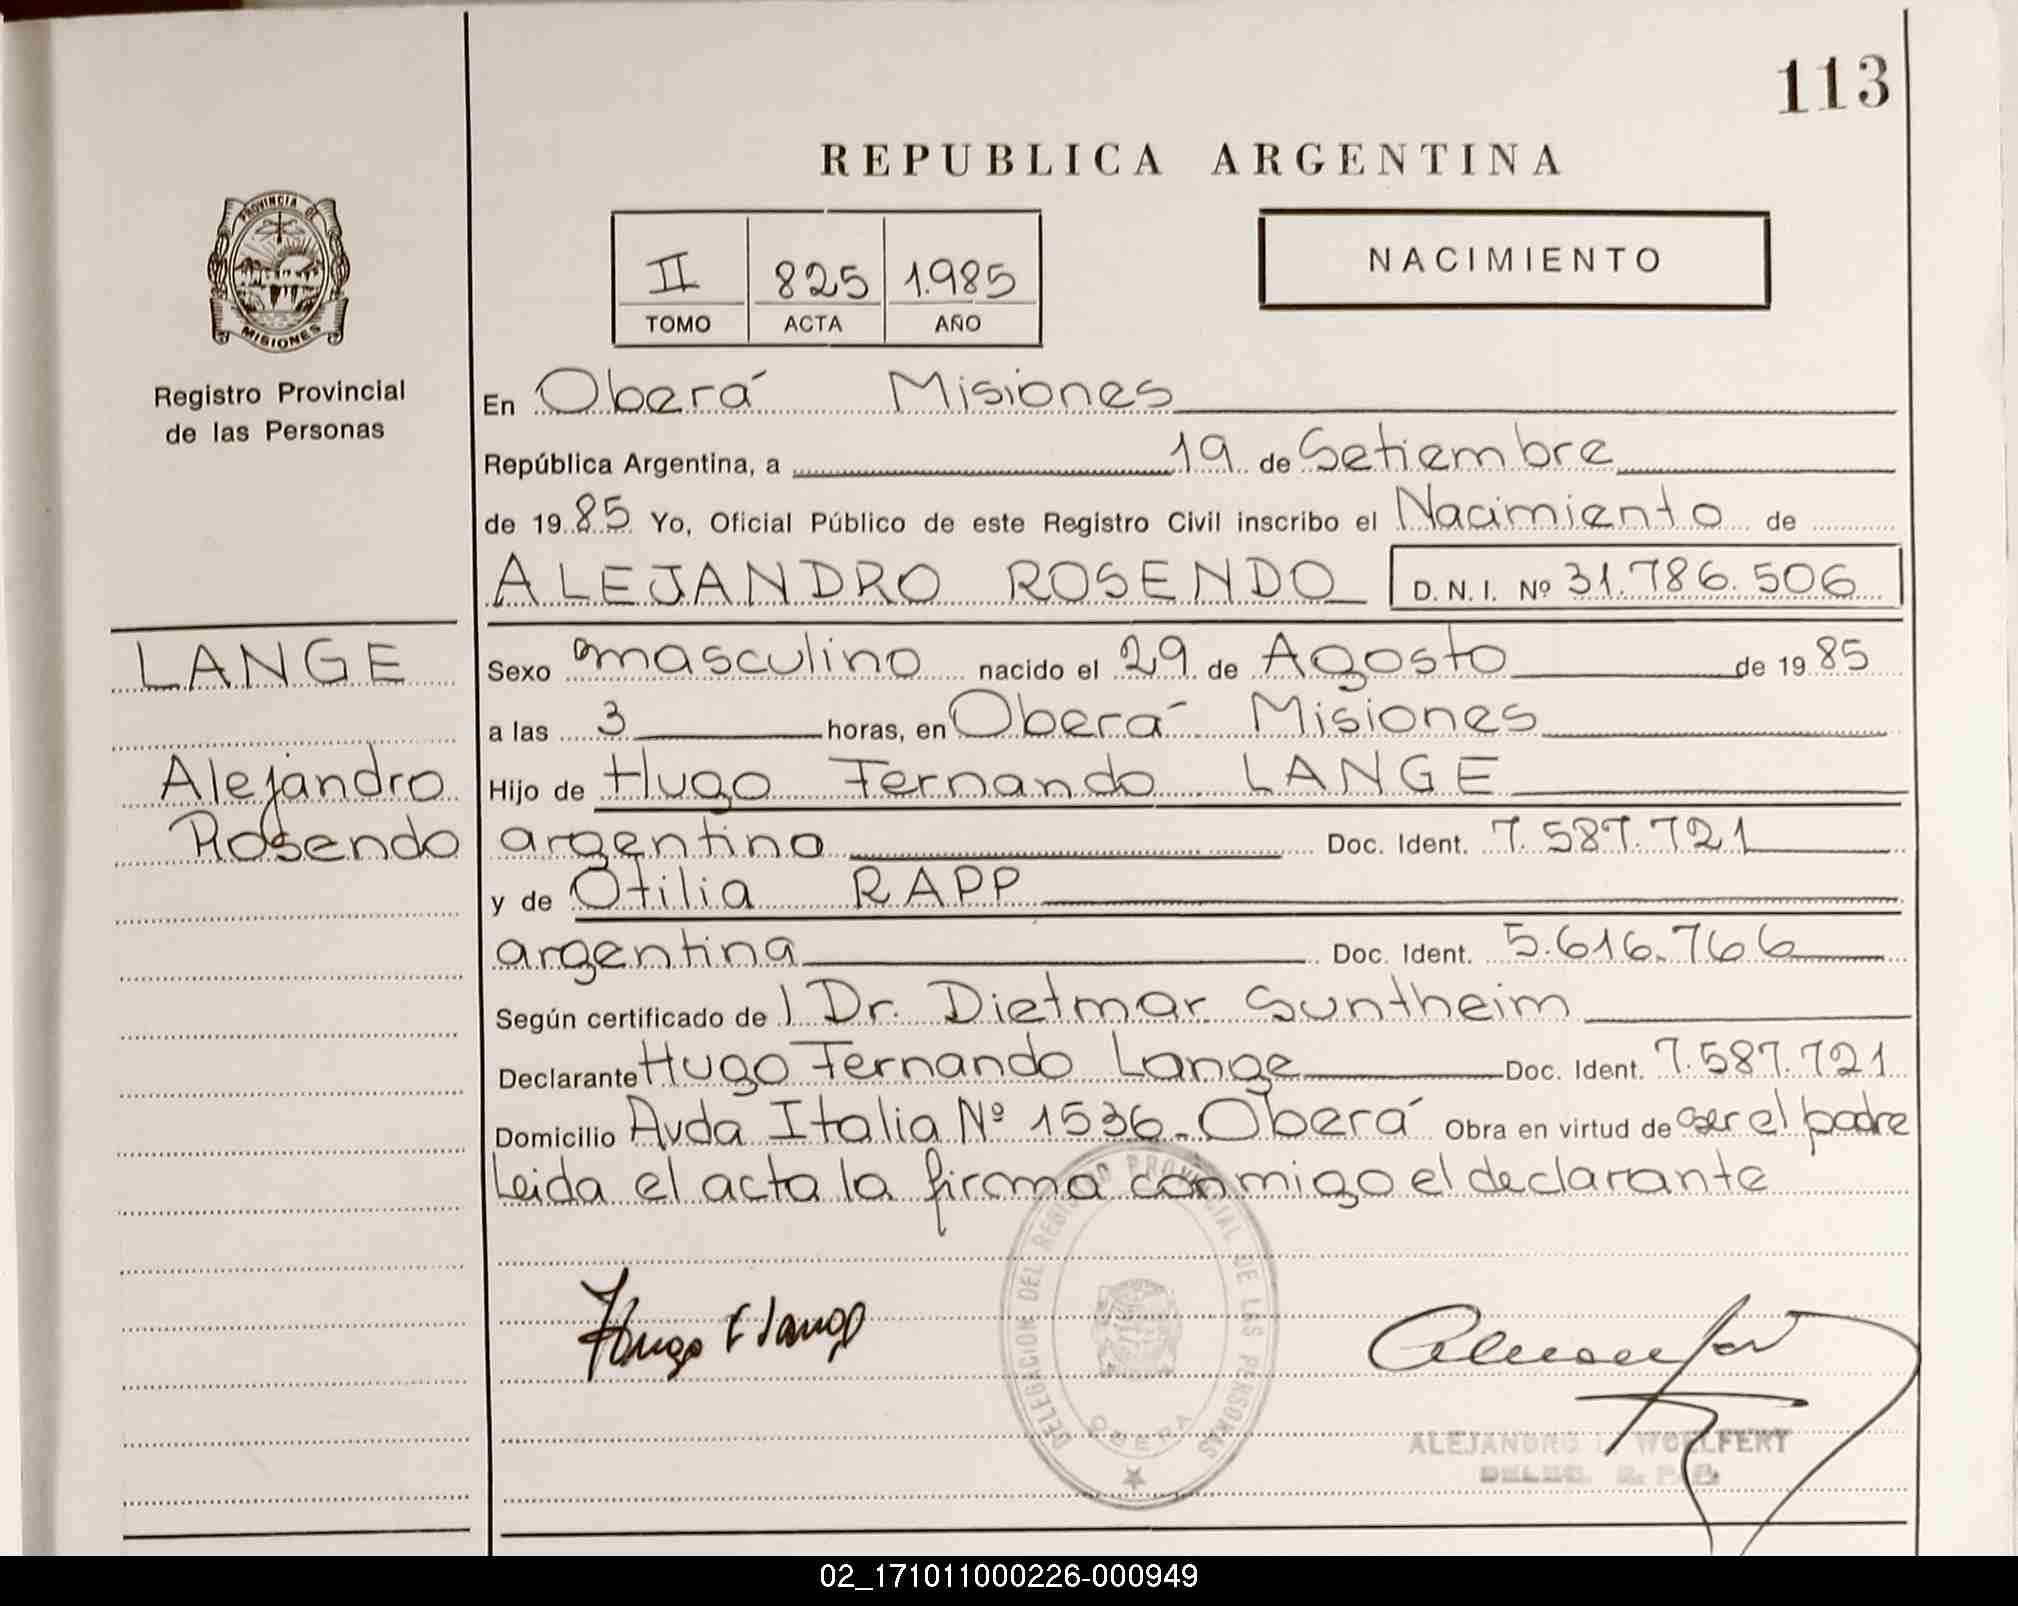 113
REPUBLICA ARGENTINA
PROVINCIA DE
MISIONES
Registro Provincial
de las Personas
II 825 1.985
TOMO ACTA AÑO
NACIMIENTO
En Oberá Misiones
República Argentina, a 19 de Setiembre
de 1985 Yo, Oficial Público de este Registro Civil inscribo el Nacimiento de
ALEJANDRO ROSENDO D.N.I. Nº 31.786.506
LANGE
Alejandro
Rosendo
Sexo masculino nacido el 29 de Agosto de 1985
a las 3 horas, en Oberá Misiones
Hijo de Hugo Fernando LANGE
argentino Doc. Ident. 7.587.721
y de Otilia RAPP
argentina Doc. Ident. 5.616.766
Según certificado de l Dr. Dietmar Suntheim
Declarante Hugo Fernando Lange Doc. Ident. 7.587.721
Domicilio Avda Italia Nº 1536- Oberá Obra en virtud de ser el padre
Leida el acta la firma conmigo el declarante
DELEGACION DEL REGISTRO PROVINCIAL DE LAS PERSONAS
OBERA
Hugo F Lange
ALEJANDRO WOELFERT
DELEG. R. P. P.
02_171011000226-000949